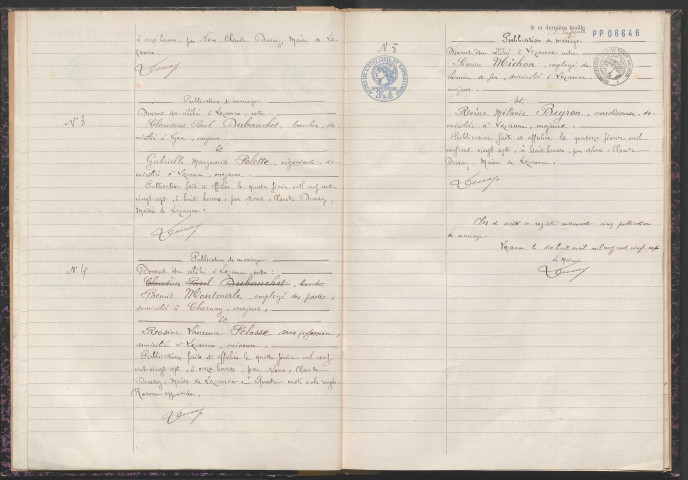 à onze heures, par Nous Claude Ducray, Maire de Lozanne.
N° 3
Publication de mariage
Devant être célébré à Lozanne, entre
Claudius Paul Dubanchet, boucher, do-
micilié à Gran, majeur,
et
Gabrielle Marguerite Polette, do-
miciliée à Lozanne, majeure.
Publication faite et affichée le quatre février mil neuf cent
vingt sept, à huit heures, par Nous, Claude Ducray,
Maire de Lozanne.
N° 4
Publication de mariage
Devant être célébré à Lozanne, entre :
Claudius Paul Dubanchet,
Benoit Montmerle, employé des postes,
domicilié à Charnay, majeur,
et
Laurence Pelosse, sans profession,
domiciliée à Lozanne, mineure.
Publication faite et affichée le quatre février mil neuf
cent vingt sept, à onze heures, par Nous, Claude
Ducray, Maire de Lozanne. Quatre mots nuls rayés.
N: 5
2e et dernière feuille
PP 06646
Publication de mariage
Devant être célébré à Lozanne entre
Simon Michon, employé de
chemin de fer, domicilié à Lozanne,
majeur,
et
Reine Mélanie Peyron, do-
miciliée à Lozanne, majeure.
Publication faite et affichée le quatorze février mil
neuf cent vingt sept, à huit heures, par Nous, Claude
Ducray, Maire de Lozanne.
Clos et arrêté ce registre contenant cinq publications
de mariage.
Lozanne le dix huit avril mil neuf cent vingt sept
Le Maire